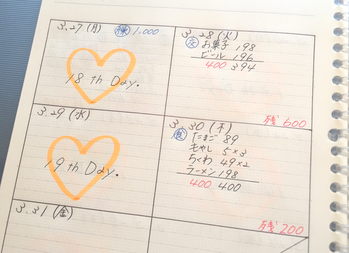 3.27(月) 1,000
18th Day.
3.28(火)
お菓子 198
ビール 196
400 394
残 600
3.29(水)
19th Day.
3.30(木)
たまご 89
もやし 5×3
ちくわ 49×2
ラーメン 198
400 400
残 200
3.31(金)